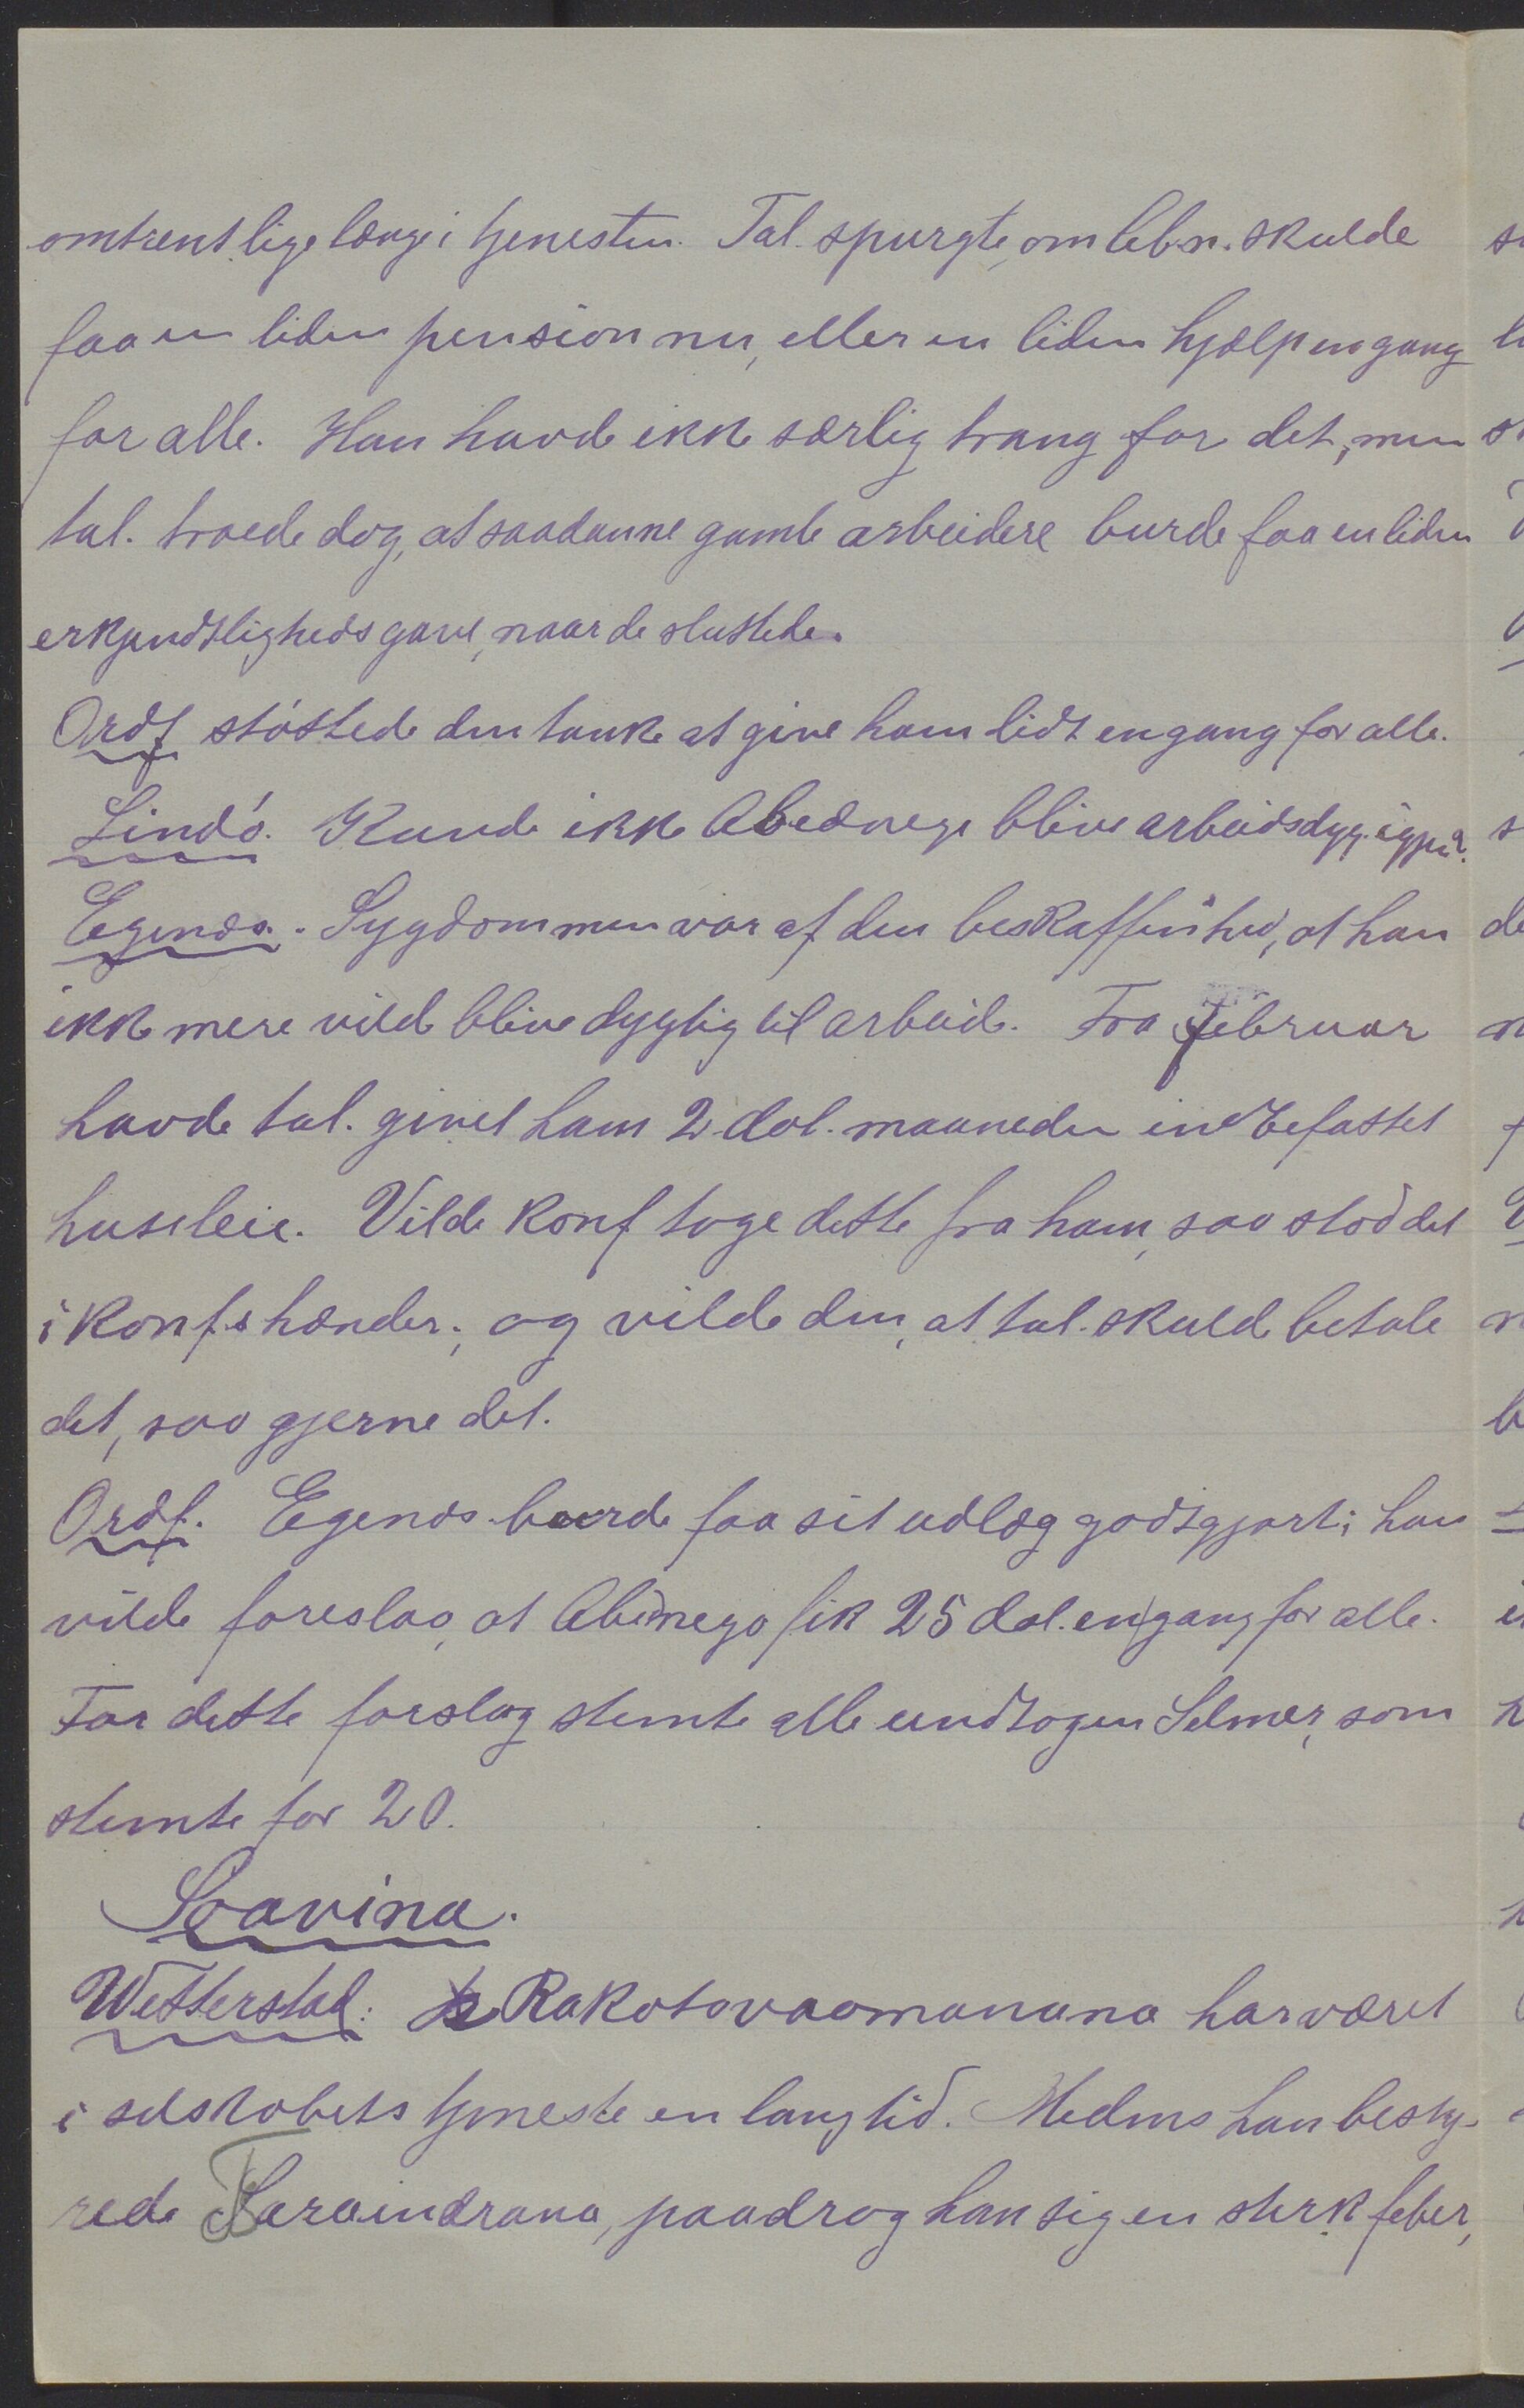 omtrent lige længe i tjenesten. Tal. spurgte, om Ab.n. skulde
faa en liden pension nu, eller en liden hjælp engang
for alle. Han havde ikke særlig trang for det, men
tal. troede dog, at saadanne gamle arbeidere burde faa en liden
erkjendtligheds gave, naar de sluttede.
Ordf støttede den tanke at give ham lidt engang for alle.
Lindø. Kunde ikke Abednego blive arbeidsdyg. igjen?
Egenæs. Sygdommen var af den beskaffenhed, at han
ikke mere vilde blive dygtig til arbeide. Fra februar
havde tal. givet ham 2 dol. maaneden indbefattet
husleie. Vilde konf tage dette fra ham, saa stod det
i konf.s hænder; og vilde den, at tal. skulde betale
det, saa gjerne det.
Ordf. Egenæs burde faa sit udlæg godtgjort; han
vilde foreslaa, at Abednego fik 25 dol. engang for alle.
For dette forslag stemte alle undtagen Selmer, som
stemte for 20.
Soavina.
Wetterstad: Rakotovaomanana har været
i selskabets tjeneste en lang tid. Medens han besty-
rede Tsaraindrana, paadrog han sig en sterk feber,